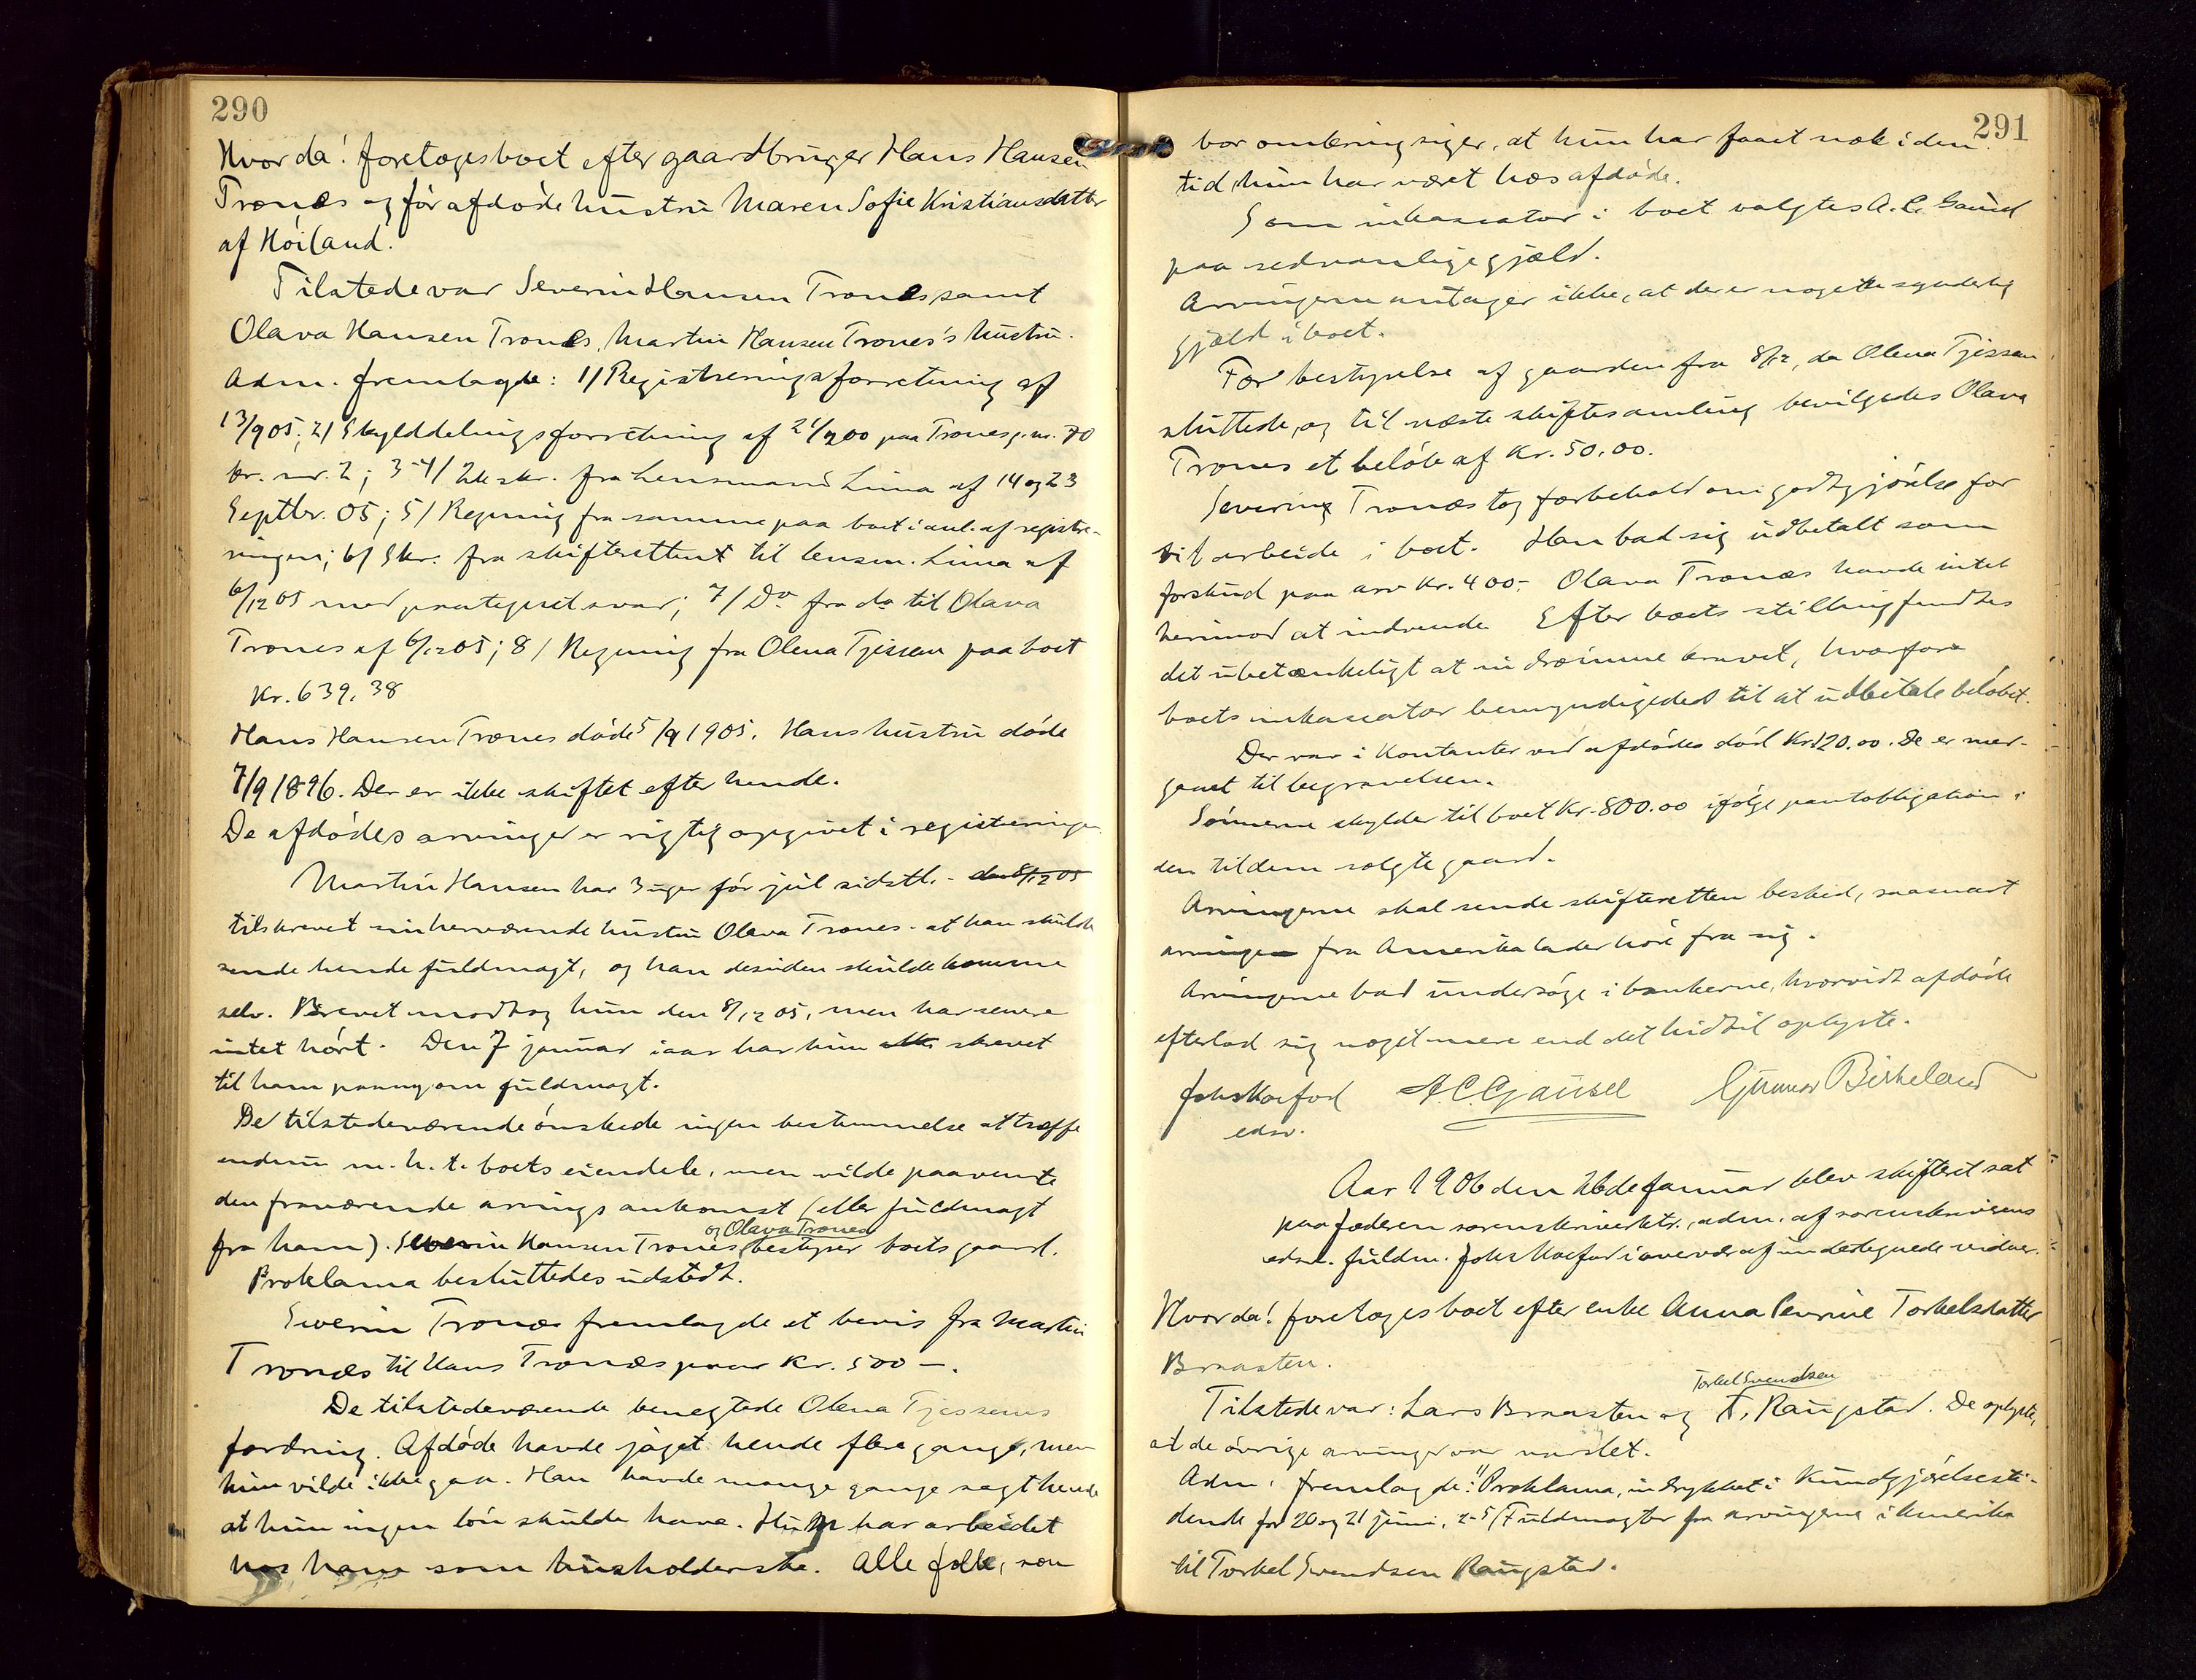 290
Hvorda! foretoges boet efter gaardbruger Hans Hansen
Tronæs og før afdøde hustru Maren Sofie Kristiansdatter
af Höiland.
Tilstede var Severin Hansen Trones samt
Olava Hansen Trones, Martin Hansen Trones's hustru.
Adm. fremlagde: 1/ Registreringsforretning af
13/9 05; 2/ Skylddelingsforretning af 21/7 00 paa Trones g.nr. 70
br. nr. 2; 3-4/ 2de skr. fra lensmand Lima af 14 og 23
Septbr. 05; 5/ Regning fra samme paa boet i anl. af registre-
ringen; 6/ Skr. fra skifteretten til lensm. Lima af
6/12 05 med paategnet svar; 7/ Do fra do til Olava
Trones af 6/12 05; 8/ Regning fra Olena Tjessem paa boet
Kr. 639,38
Hans Hansen Trones døde 5/9 1905. Hans hustru døde
7/9 1896. Der er ikke skiftet efter hende.
De afdødes arvinger er rigtig opgivet i registreringen.
Martin Hansen har 3 uger før jul sidstl. - den 8/12 05
tilskrevet sin herværende hustru Olava Trones - at han skulde
sende hende fuldmagt, og han desuden skulde komme
selv. Brevet modtog hun den 8/12 05, men har senere
intet hørt. Den 7 januar iaar har hun skrevet
til ham paany om fuldmagt.
De tilstedeværende ønskede ingen bestemmelse at træffe
endnu m. h. t. boets eiendele, men vilde paavente
den fraværende arvings ankomst (eller fuldmagt
og Olava Trones
fra ham). Severin Hansen Trones bestyrer boets gaard.
Proklama besluttedes udstedt.
Severin Trones fremlagde et bevis fra Martin
Tronæs til Hans Tronæs paa Kr. 500 -.
De tilstedeværende benegtede Olena Tjessems
fordring. Afdøde havde jaget hende flere gange, men
hun vilde ikke gaa. Han havde mange gange sagt hende
at hun ingen løn skulde have. Hun har arbeidet
hos ham som husholderske. Alle folk, som
291
bor omkring siger, at hun har faaet nok i den
tid, hun har været hos afdøde.
Som inkassator i boet valgtes A. C. Gausel
paa sedvanlige gjæld.
Arvingerne antager ikke, at der er noget synderlig
gjæld i boet.
For bestyrelse af gaarden fra 8/12, da Olena Tjessem
sluttede, og til næste skiftesamling bevilgedes Olava
Trones et beløb af Kr. 50,00.
Severin Tronæs tog forbehold om godtgjørelse for
sit arbeide i boet. Han bad sig udbetalt som
forskud paa arv Kr. 400,- Olava Tronæs havde intet
herimod at indvende. Efter boets stilling fandtes
det ubetænkeligt at indrømme kravet, hvorfor
boets inkassator bemyndigedes til at udbetale beløbet.
Der var i kontanter ved afdødes død Kr. 120.00. De er med-
gaaet til begravelsen.
Sønnerne skylder til boet Kr. 800.00 ifølge pantobligation i
den til dem solgte gaard.
Arvingerne skal sende skifteretten besked, saasnart
arvingen fra Amerika lader høre fra sig.
Arvingerne bad undersøge i bankerne, hvorvidt afdøde
efterlod sig noget mere end det hidtil oplyste.
Johs Koefod A. C. Gausel Gunnar Birkeland
edsv.
Aar 1906 den 26de januar blev skifteret sat
paa Jæderen sorenskriverktr., adm. af sorenskriverens
edsv. fuldm. Johs Koefod i overvær af undertegnede vidner.
Hvorda! foretoges boet efter enke Anna Severine Torkelsdatter
Braasten.
Torkel Svendsen
Tilstede var: Lars Braasten og T. Raugstad. De oplyste,
at de øvrige arvinger var varslet.
Adm. fremlagde: 1/ Proklama, indrykket i Kundgjørelsesti-
dende for 20 og 21 juni, 2-5/ Fuldmagter fra arvingerne i Amerika
til Torkel Svendsen Raugstad.